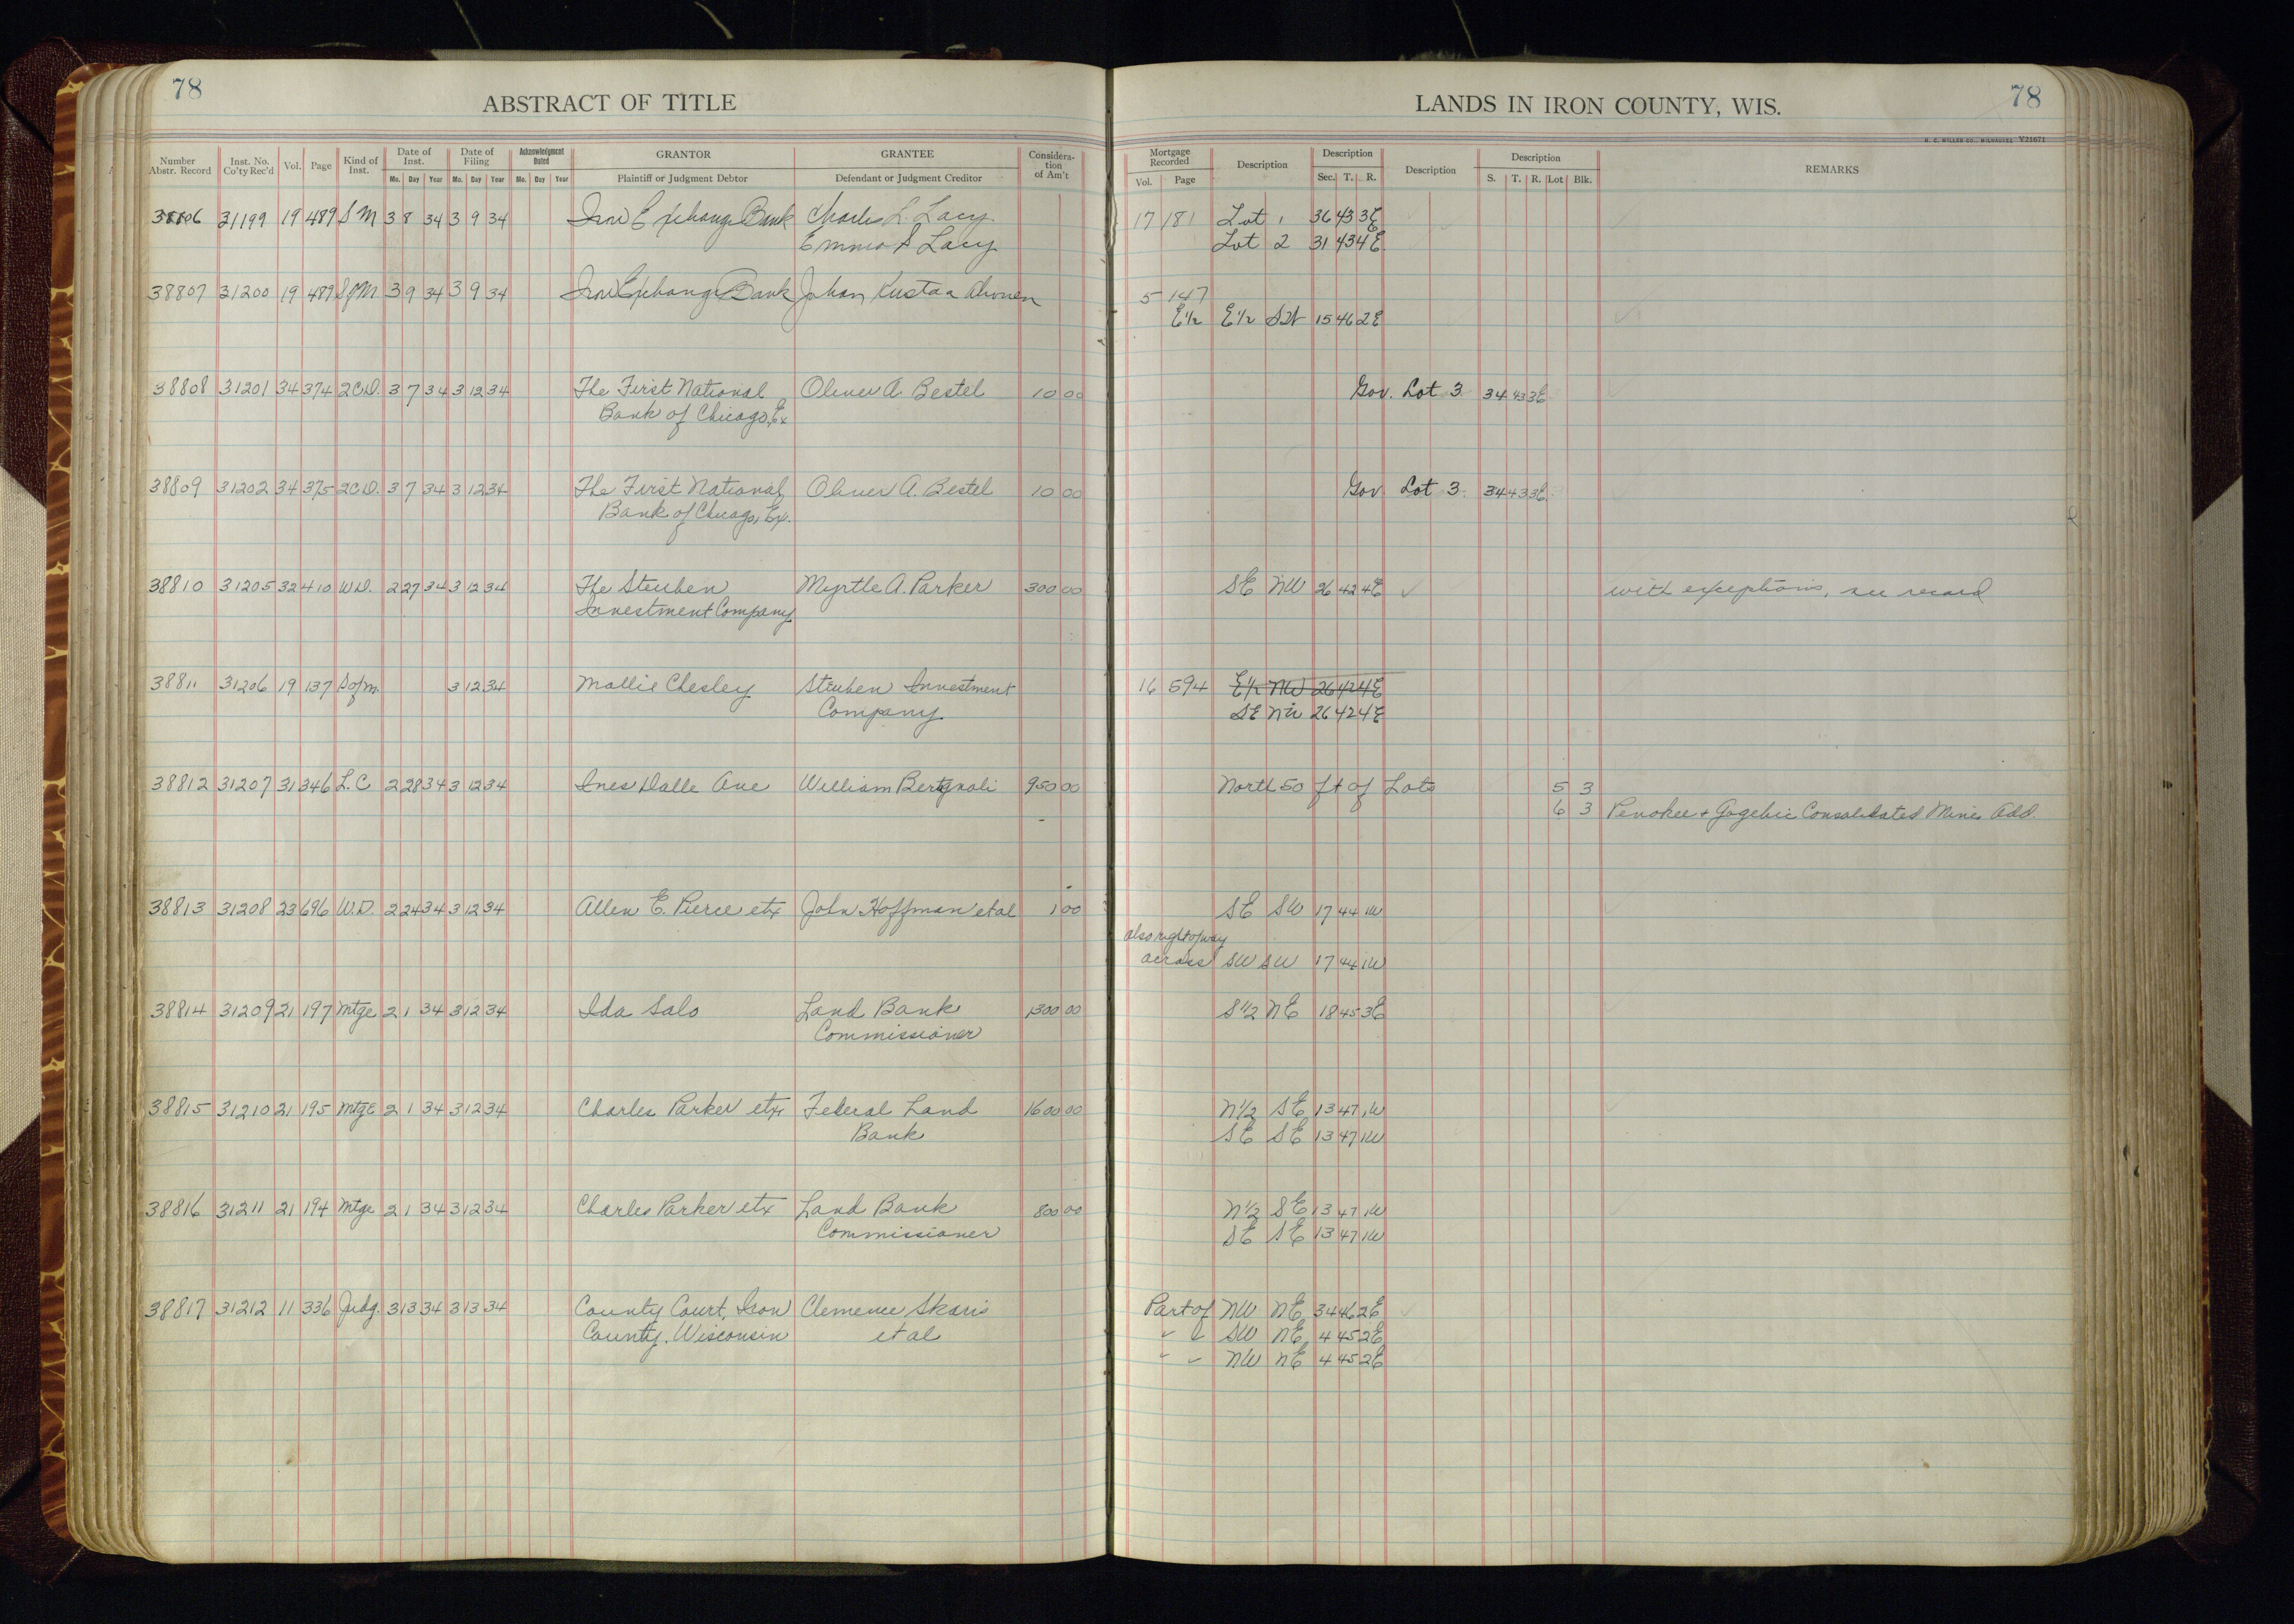 78
ABSTRACT OF TITLE
Number Abstr. Record | Inst. No. Co'ty Rec'd | Vol. | Page | Kind of Inst. | Date of Inst. Mo. Day Year | Date of Filing Mo. Day Year | Acknowledgment Dated Mo. Day Year | GRANTOR Plaintiff or Judgment Debtor | GRANTEE Defendant or Judgment Creditor | Consideration of Am't
LANDS IN IRON COUNTY, WIS.
78
H. C. MILLER CO., MILWAUKEE V21671
Mortgage Recorded Vol. Page | Description | Description Sec. T. R. | Description | Description S. T. R. Lot Blk. | REMARKS
38806 31199 19 489 S M 3 8 34 3 9 34 Iron Exchange Bank Charles L. Lacy 17 181 Lot 1 36 43 3E
Emma S Lacy Lot 2 31 43 4E
38807 31200 19 489 SofM 3 9 34 3 9 34 Iron Exchange Bank Johan Kustaa Ahonen 5 147
E½ E½ SW 15 46 2E
38808 31201 34 374 2CD. 3 7 34 3 12 34 The First National Oliver A. Bestel 10 00 Gov. Lot 3 34 43 3E
Bank of Chicago, Ex
38809 31202 34 375 2CD. 3 7 34 3 12 34 The First National Oliver A. Bestel 10 00 Gov Lot 3 34 43 3E
Bank of Chicago, Ex.
38810 31205 32 410 W.D. 2 27 34 3 12 34 The Steuben Myrtle A. Parker 300 00 SE NW 26 42 4E with exceptions, see record
Investment Company
38811 31206 19 137 Sofm. 3 12 34 Mollie Chesley Steuben Investment 16 594 E½ NW 26 42 4E
Company SE NW 26 42 4E
38812 31207 31 346 L.C 2 28 34 3 12 34 Ines Dalle Ave William Bertgnoli 950 00 North 50 ft of Lots 5 3
6 3 Penokee + Gogebic Consolidated Mines Add.
38813 31208 23 696 W.D. 2 24 34 3 12 34 Allen E. Pierce etx John Hoffman et al 1 00 SE SW 17 44 1W
also right of way
across SW SW 17 44 1W
38814 31209 21 197 Mtge 2 1 34 3 12 34 Ida Salo Land Bank 1300 00 S½ NE 18 45 3E
Commissioner
38815 31210 21 195 Mtge 2 1 34 3 12 34 Charles Parker etx Federal Land 1600 00 N½ SE 13 47 1W
Bank SE SE 13 47 1W
38816 31211 21 194 Mtge 2 1 34 3 12 34 Charles Parker etx Land Bank 800 00 N½ SE 13 47 1W
Commissioner SE SE 13 47 1W
38817 31212 11 336 Judg. 3 13 34 3 13 34 County Court, Iron Clemence Skaris Part of NW NE 34 46 2E
County. Wisconsin et al " " SW NE 4 45 2E
" " NW NE 4 45 2E